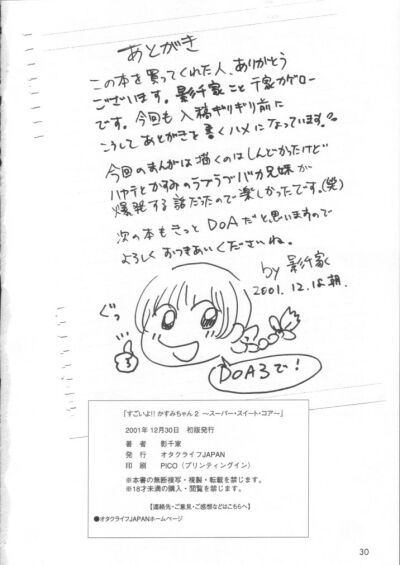 あとがき
この本を買ってくれた人、ありがとう
ございます。影千家こと千家カゲロー
です。今回も入稿ギリギリ前に
こうしてあとがきを書くハメになっています。
今回のまんがは描くのはしんどかったけど
ハヤテとかすみのラブラブバカ兄妹が
爆発する話だったので楽しかったです。(笑)
次の本もきっとDOAだと思いますので
よろしくおつきあいくださいね。
by 影千家
2001.12.18朝.
ぐっ
DOA3で!
「すごいよ!! かすみちゃん 2 ～スーパー・スイート・コア～」
2001年 12月30日 初版発行
著 者 影千家
発 行 オタクライフJAPAN
印 刷 PICO（プリンティングイン）
※本書の無断複写・複製・転載を禁じます。
※18才未満の購入・閲覧を禁じます。
【連絡先・ご意見・ご感想などはこちらへ】
●オタクライフJAPANホームページ
30